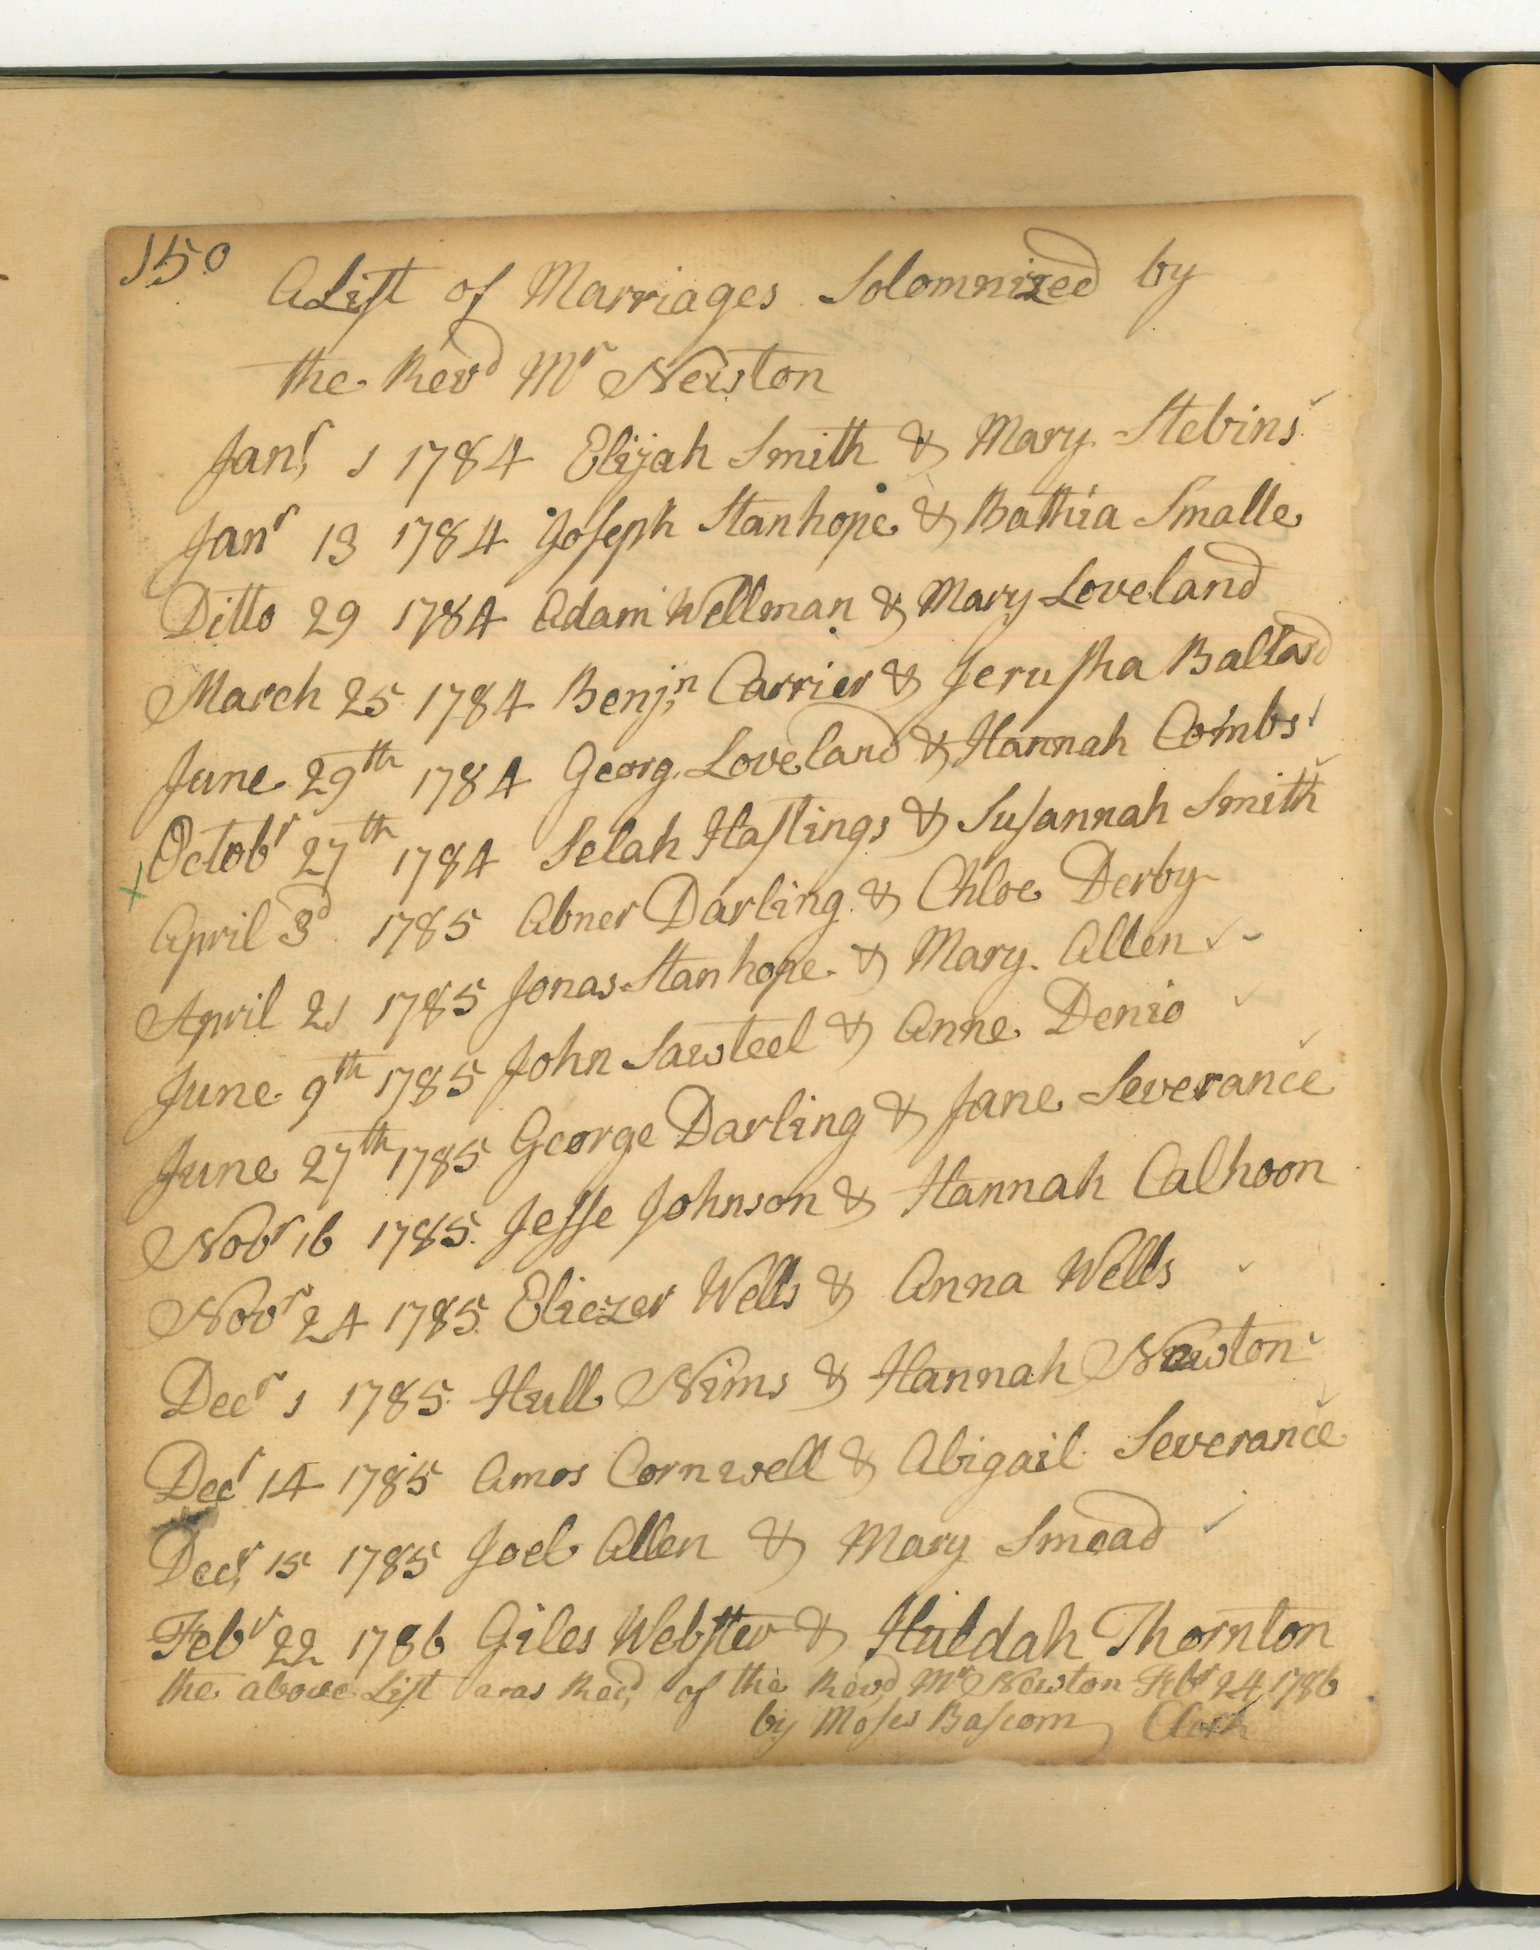 150
A List of Marriages Solomnized by
the Revd Mr Newton
Janr 1 1784 Elijah Smith & Mary Stebins
Janr 13 1784 Joseph Stanhope & Bathia Smalle
Ditto 29 1784 Adam Wellman & Mary Loveland
March 25 1784 Benjn Carrier & Jerusha Ballard
June 29th 1784 Georg Loveland & Hannah Combs
Octobr 27th 1784 Selah Hastings & Susannah Smith
April 3d 1785 Abner Darling & Chloe Derby
April 21 1785 Jonas Stanhope & Mary Allen
June 9th 1785 John Sawteel & Anne Denio
June 27th 1785 George Darling & Jane Severance
Nobr 16 1785 Jesse Johnson & Hannah Calhoon
Novr 24 1785 Eliezer Wells & Anna Wells
Decr 1 1785 Hull Nims & Hannah Newton
Decr 14 1785 Amos Cornwell & Abigail Severance
Decr 15 1785 Joel Allen & Mary Smead
Febr 22 1786 Giles Webster & Huldah Thornton
the above List was Recd of the Revd Mr Newton Febr 24 1786
by Moses Bascom Clerk